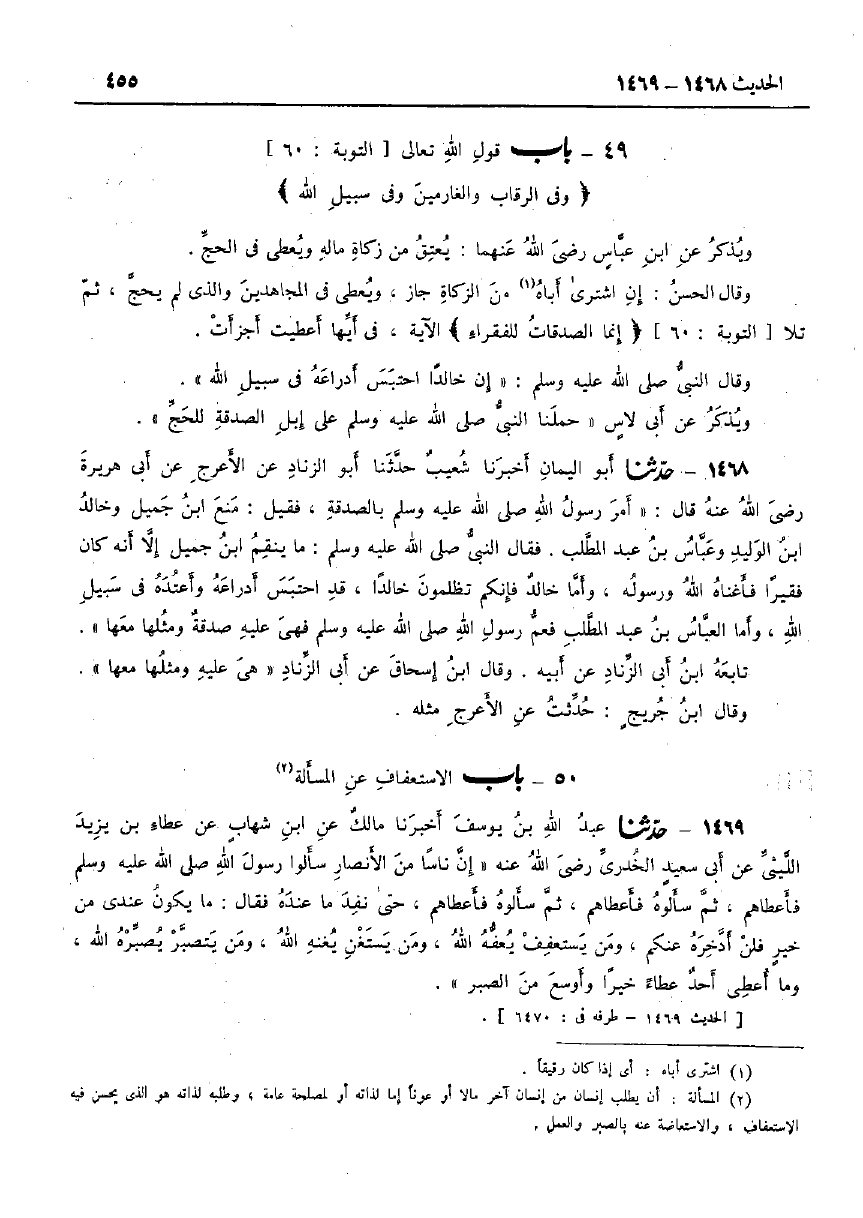 الحديث ١٤٦٨ – ١٤٦٩
٤٥٥
٤٩ – باب قولِ اللهِ تعالى [ التوبة : ٦٠ ]
﴿ وفى الرقاب والغارمينَ وفى سبيلِ الله ﴾
ويُذكرُ عنِ ابنِ عبَّاسٍ رضىَ اللهُ عَنهما : يُعتِقُ من زكاةِ مالهِ ويُعطى فى الحجِّ .
وقال الحسنُ : إنِ اشترىٰ أباهُ(١) منَ الزكاةِ جاز ، ويُعطى فى المجاهدينَ والذى لم يحجَّ ، ثمّ
تلا [ التوبة : ٦٠ ] ﴿ إنما الصدقاتُ للفقراء ﴾ الآية ، فى أيِّها أَعطيت أَجزأتْ .
وقال النبىُّ صلى الله عليه وسلم : « إن خالدًا احتبَسَ أدراعَهُ فى سبيلِ الله » .
ويُذكَرُ عن أبى لاسٍ « حملَنا النبىُّ صلى الله عليه وسلم على إبلِ الصدقةِ للحَجِّ » .
١٤٦٨ – حدّثنا أبو اليمانِ أخبرَنا شُعيبٌ حدَّثَنا أبو الزنادِ عن الأعرجِ عن أبى هريرةَ
رضىَ اللهُ عنهُ قال : « أمرَ رسولُ اللهِ صلى الله عليه وسلم بالصدقةِ ، فقيل : مَنعَ ابنُ جَميل وخالدُ
ابنُ الوَليدِ وعَبَّاسُ بنُ عبد المطَّلب . فقال النبىُّ صلى الله عليه وسلم : ما ينقِمُ ابنُ جميل إلَّا أنه كان
فقيرًا فأغناهُ اللهُ ورسولُه ، وأمَّا خالدٌ فإنكم تظلمونَ خالدًا ، قدِ احتبَسَ أدراعَهُ وأعتُدَهُ فى سَبيلِ
اللهِ ، وأما العبَّاسُ بنُ عبد المطَّلبِ فعمُّ رسولِ اللهِ صلى الله عليه وسلم فهىَ عليهِ صدقةٌ ومثلُها معَها » .
تابعَهُ ابنُ أبى الزِّنادِ عن أبيه . وقال ابنُ إسحاقَ عن أبى الزِّنادِ « هىَ عليهِ ومثلُها معها » .
وقال ابنُ جُريجٍ : حُدِّثتُ عنِ الأعرجِ مثله .
٥٠ – باب الاستعفافِ عنِ المسألة(٢)
١٤٦٩ – حدّثنا عبدُ اللهِ بنُ يوسفَ أخبرَنا مالكٌ عنِ ابنِ شهابٍ عن عطاءِ بن يزيدَ
اللَّيثىِّ عن أبى سعيدٍ الخُدرىِّ رضىَ اللهُ عنه « إنَّ ناسًا منَ الأنصارِ سألوا رسولَ اللهِ صلى الله عليه وسلم
فأعطاهم ، ثمَّ سألوهُ فأعطاهم ، ثمَّ سألوهُ فأعطاهم ، حتىٰ نفِدَ ما عندَهُ فقال : ما يكونُ عندى من
خيرٍ فلنْ أدَّخِرَهُ عنكم ، ومَن يَستعفِفْ يُعفَّهُ اللهُ ، ومَن يَستَغْنِ يُغنهِ اللهُ ، ومَن يَتصبَّرْ يُصبِّرْهُ الله ،
وما أُعطِى أحدٌ عطاءً خيرًا وأوسعَ منَ الصبر » .
[ الحديث ١٤٦٩ – طرفه فى : ٦٤٧٠ ] .
(١) اشترى أباه : أى إذا كان رقيقاً .
(٢) المسألة : أن يطلب إنسان من إنسان آخر مالا أو عوناً إما لذاته أو لمصلحة عامة ، وطلبه لذاته هو الذى يحسن فيه
الاستعفاف ، والاستعاضة عنه بالصبر والعمل .